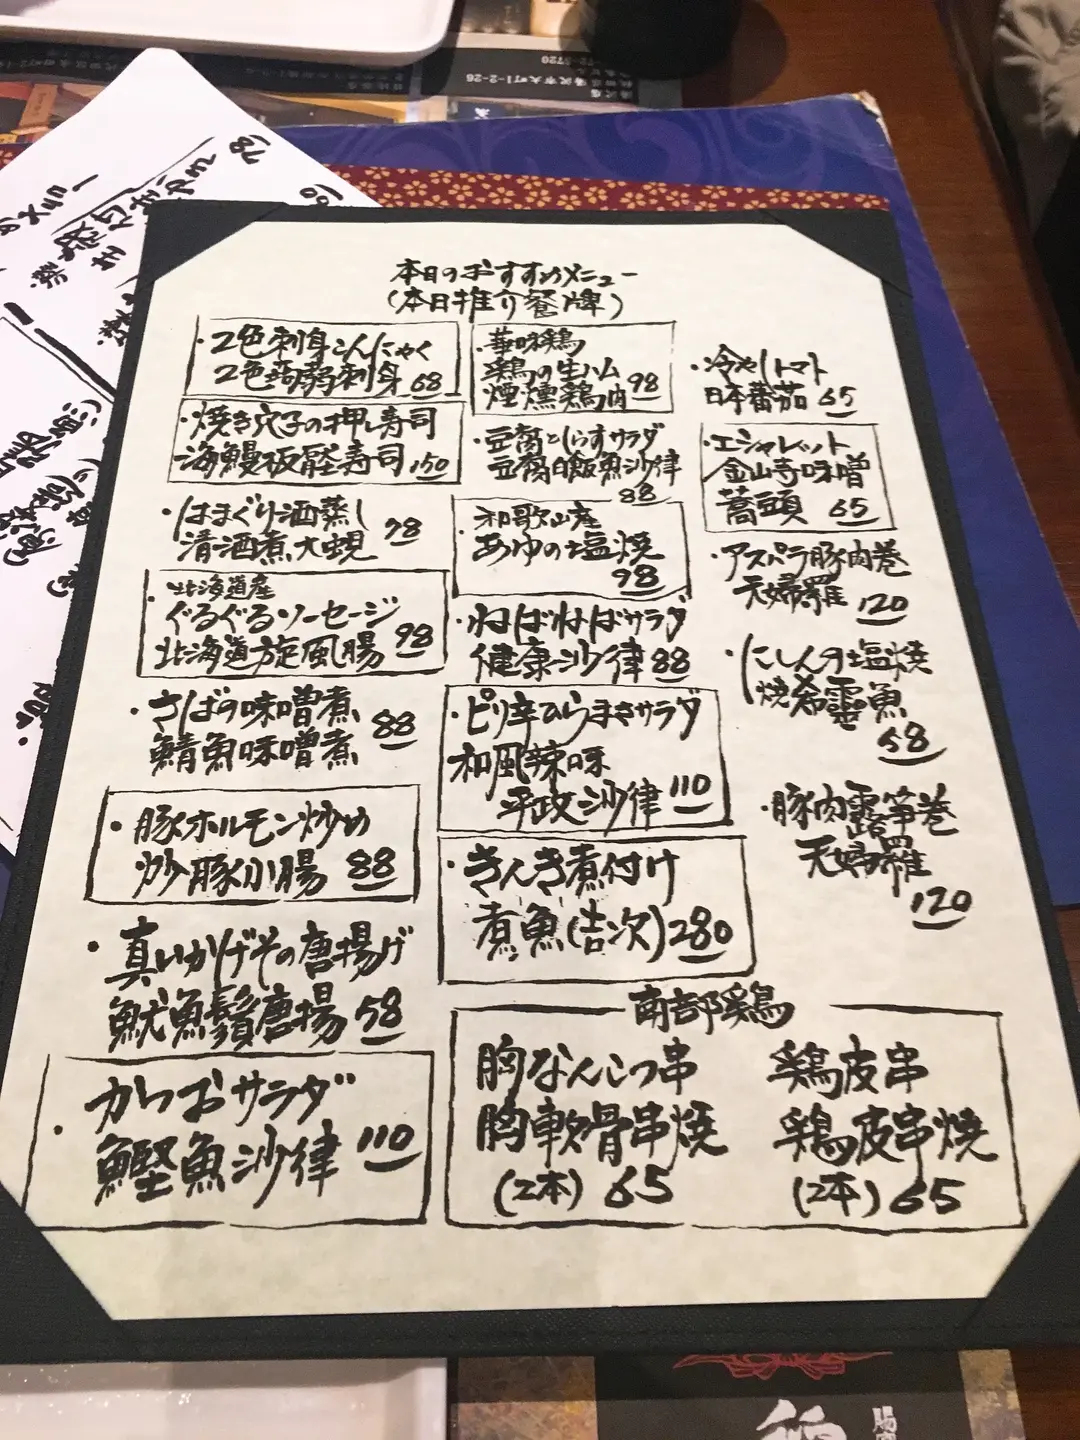 本日のおすすめメニュー
(本日推介餐牌)
・2色刺身こんにゃく
2色蒟蒻刺身 68
・焼き穴子の押し寿司
海鰻板壓寿司 150
・はまぐり酒蒸し
清酒煮大蜆 98
・北海道産
ぐるぐるソーセージ
北海道旋風腸 98
・さばの味噌煮
鯖魚味噌煮 88
・豚ホルモン炒め
炒豚小腸 88
・真いかげその唐揚げ
魷魚鬚唐揚 58
・かつおサラダ
鰹魚沙律 110
・華味鶏
鶏の生ハム
煙燻鶏肉 98
・豆腐としらすサラダ
豆腐白飯魚沙律
88
・和歌山産
あゆの塩焼
98
・ねばねばサラダ
健康沙律 88
・ピリ辛ひらまさサラダ
和風辣味
平政沙律 110
・きんき煮付け
煮魚(吉次) 280
・冷やしトマト
日本番茄 65
・エシャレット
金山寺味噌
蕎頭 65
・アスパラ豚肉巻
天婦羅 120
・にしんの塩焼
焼希靈魚
58
・豚肉露筍巻
天婦羅
120
南部鶏
胸なんこつ串
胸軟骨串焼
(2本) 65
鶏皮串
鶏皮串焼
(2本) 65